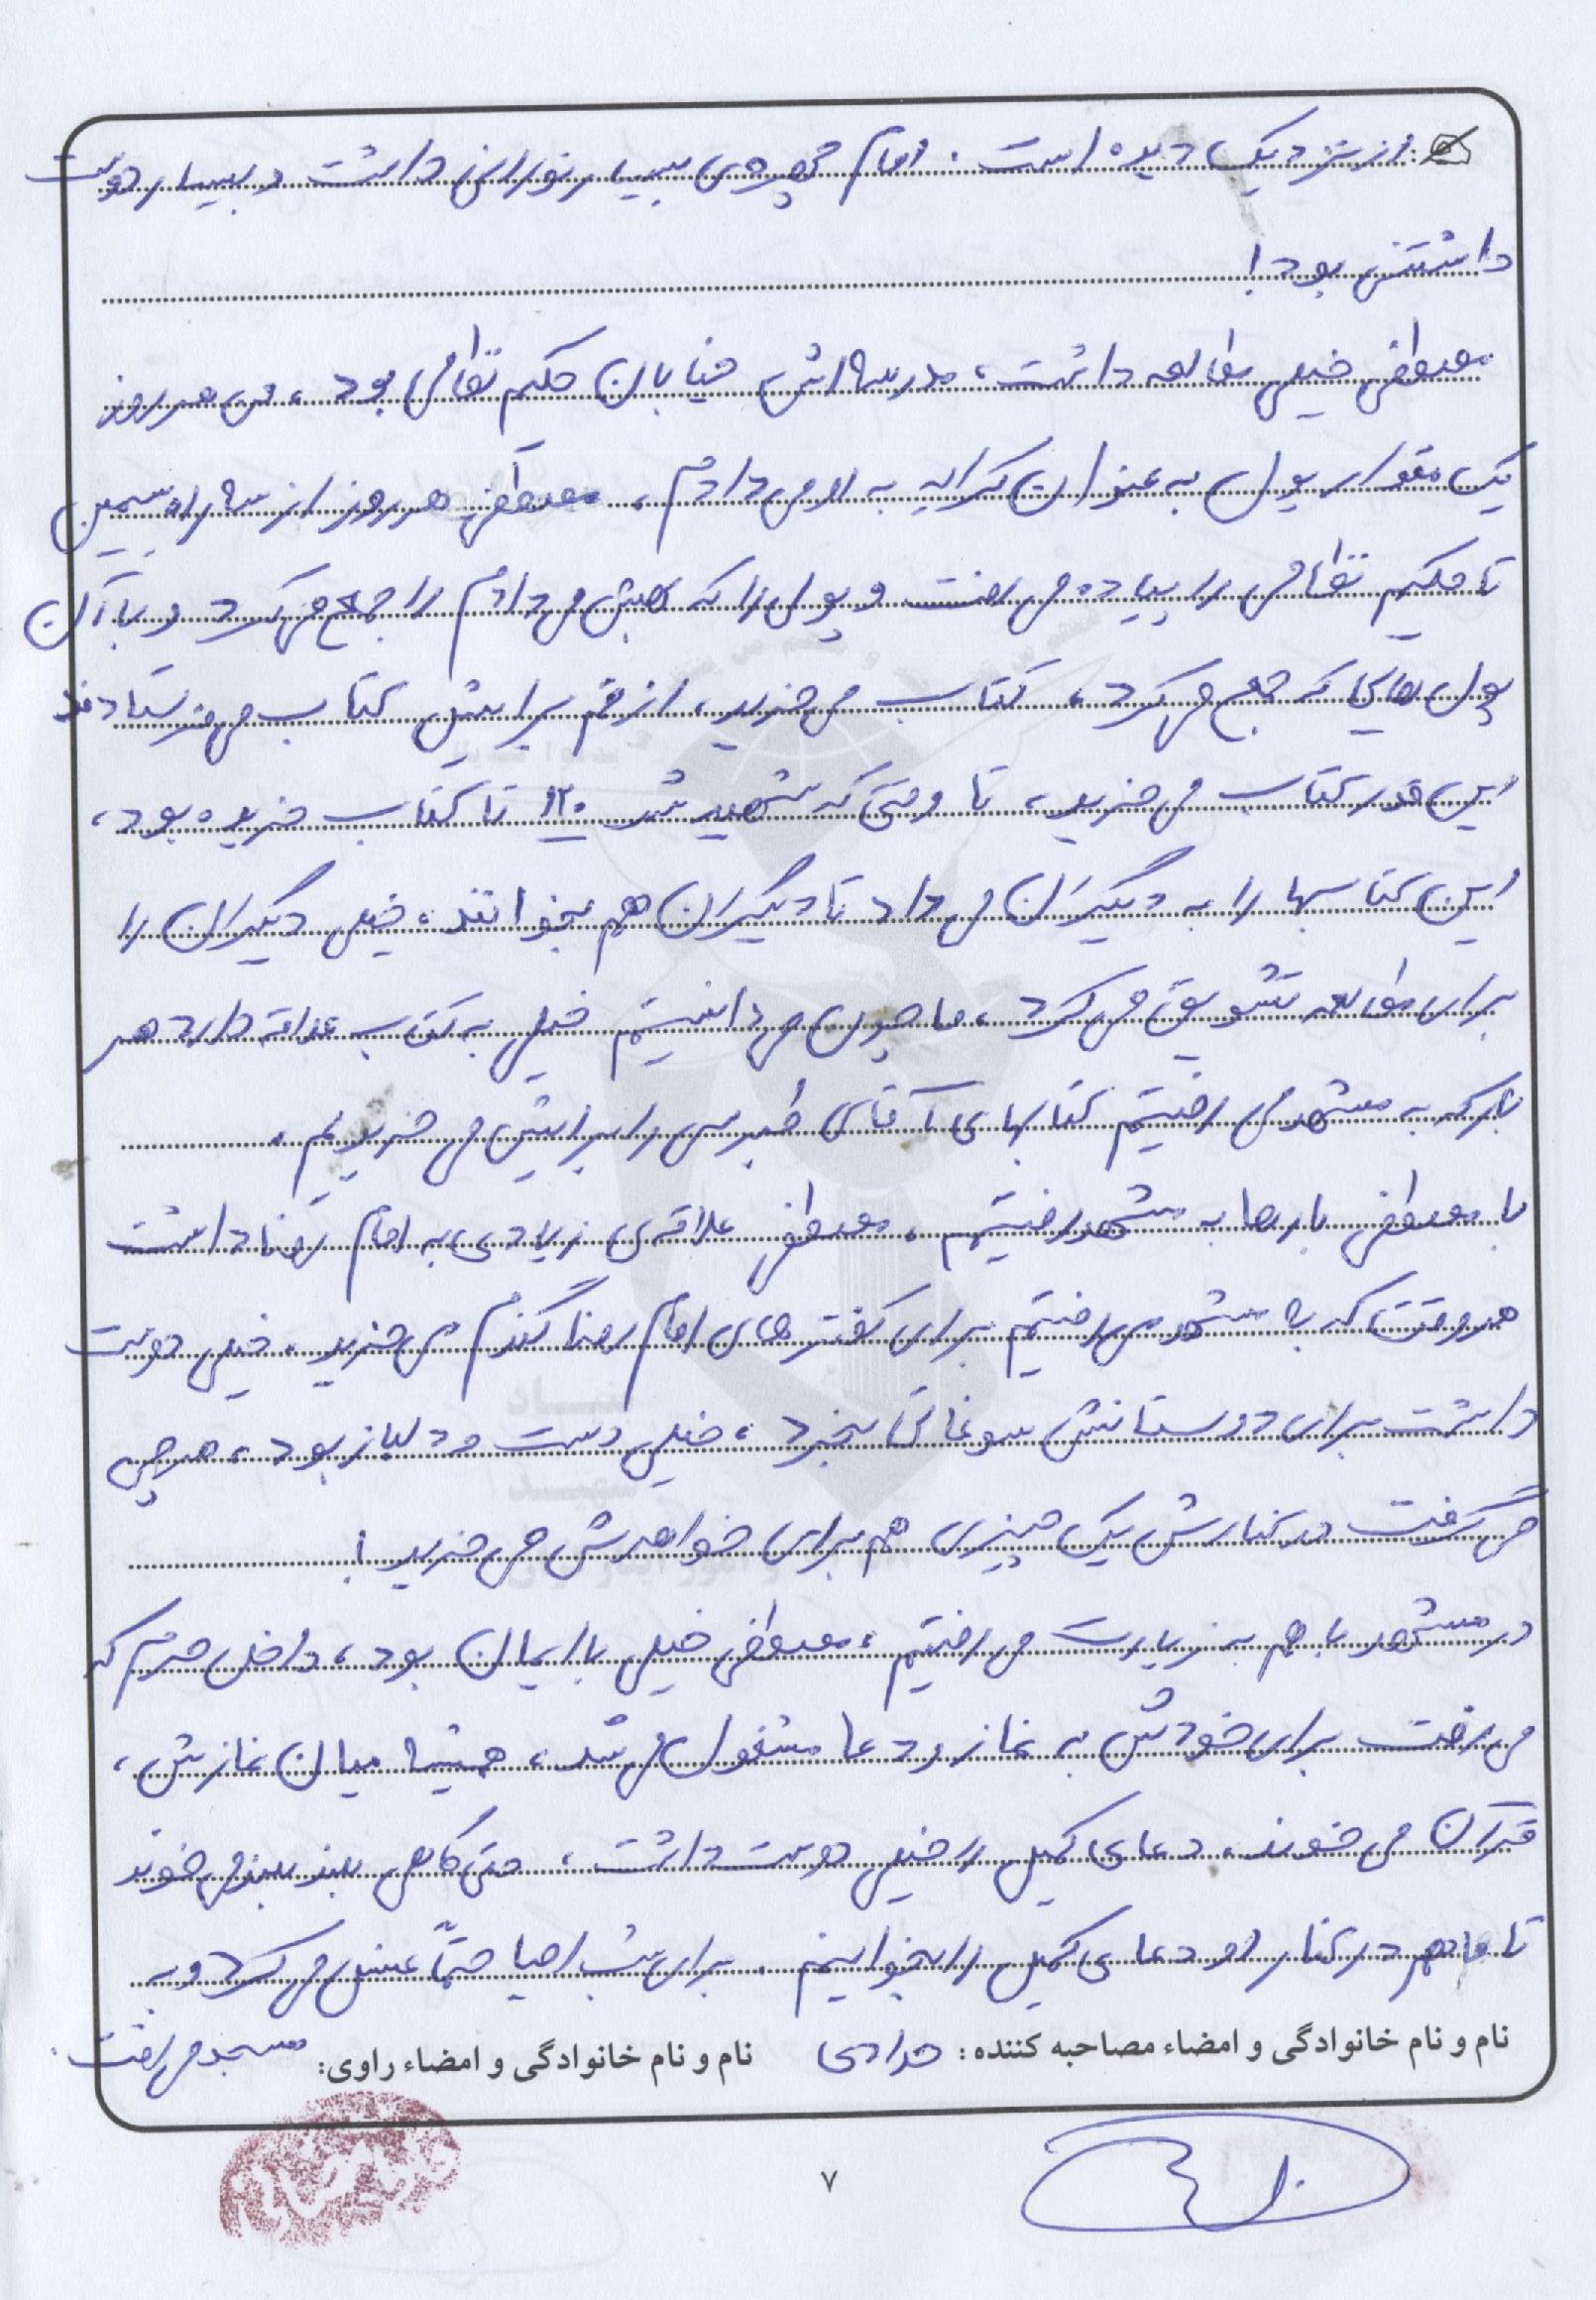 از نزدیک دیده است. امام چهره‌ی بسیار نورانی داشت و بسیار دوست
داشتنی بود!
مصطفی خیلی مطالعه داشت، مدرسه اش خیابان حکیم نظامی بود، من هر روز
یک مقدار پول به عنوان کرایه به او می دادم، مصطفی هر روز از سه راه سیمین
تا حکیم نظامی را پیاده می رفت و پولی را که بهش می دادم را جمع می کرد و با آن
پول هایی که جمع می کرد، کتاب می خرید، از قم برایش کتاب می فرستادند
این قدر کتاب می خرید، تا وقتی که شهید شد ۱۲۰ تا کتاب خریده بود،
این کتابها را به دیگران می داد تا دیگران هم بخوانند، خیلی دیگران را
برای مطالعه تشویق می کرد، ما چون می دانستیم خیلی به کتاب علاقه دارد هر
بار که به مشهد می رفتیم کتابهای آقای طبرسی را برایش می خریدیم.
با مصطفی بارها به مشهد رفتیم، مصطفی علاقه‌ی زیادی به امام رضا داشت
هر وقت که به مشهد می رفتیم برای کفترهای امام رضا گندم می خرید، خیلی دوست
داشت برای دوستانش سوغاتی بخرد، خیلی دست و دلباز بود، هر چی
می گرفت در کنارش یک چیزی هم برای خواهرش می خرید!
در مشهد با هم به زیارت می رفتیم، مصطفی خیلی با ایمان بود، داخل حرم که
می رفت برای خودش به نماز و دعا مشغول می شد، همیشه میان نمازش،
قرآن می خوند، دعای کمیل را خیلی دوست داشت، حتی گاهی بلند بلند می خوند
تا ما هم در کنار او دعای کمیل را بخوانیم. برای شب احیا حتماً غسل می کرد و به
مسجد می رفت.
نام و نام خانوادگی و امضاء مصاحبه کننده: مرادی نام و نام خانوادگی و امضاء راوی:
۷